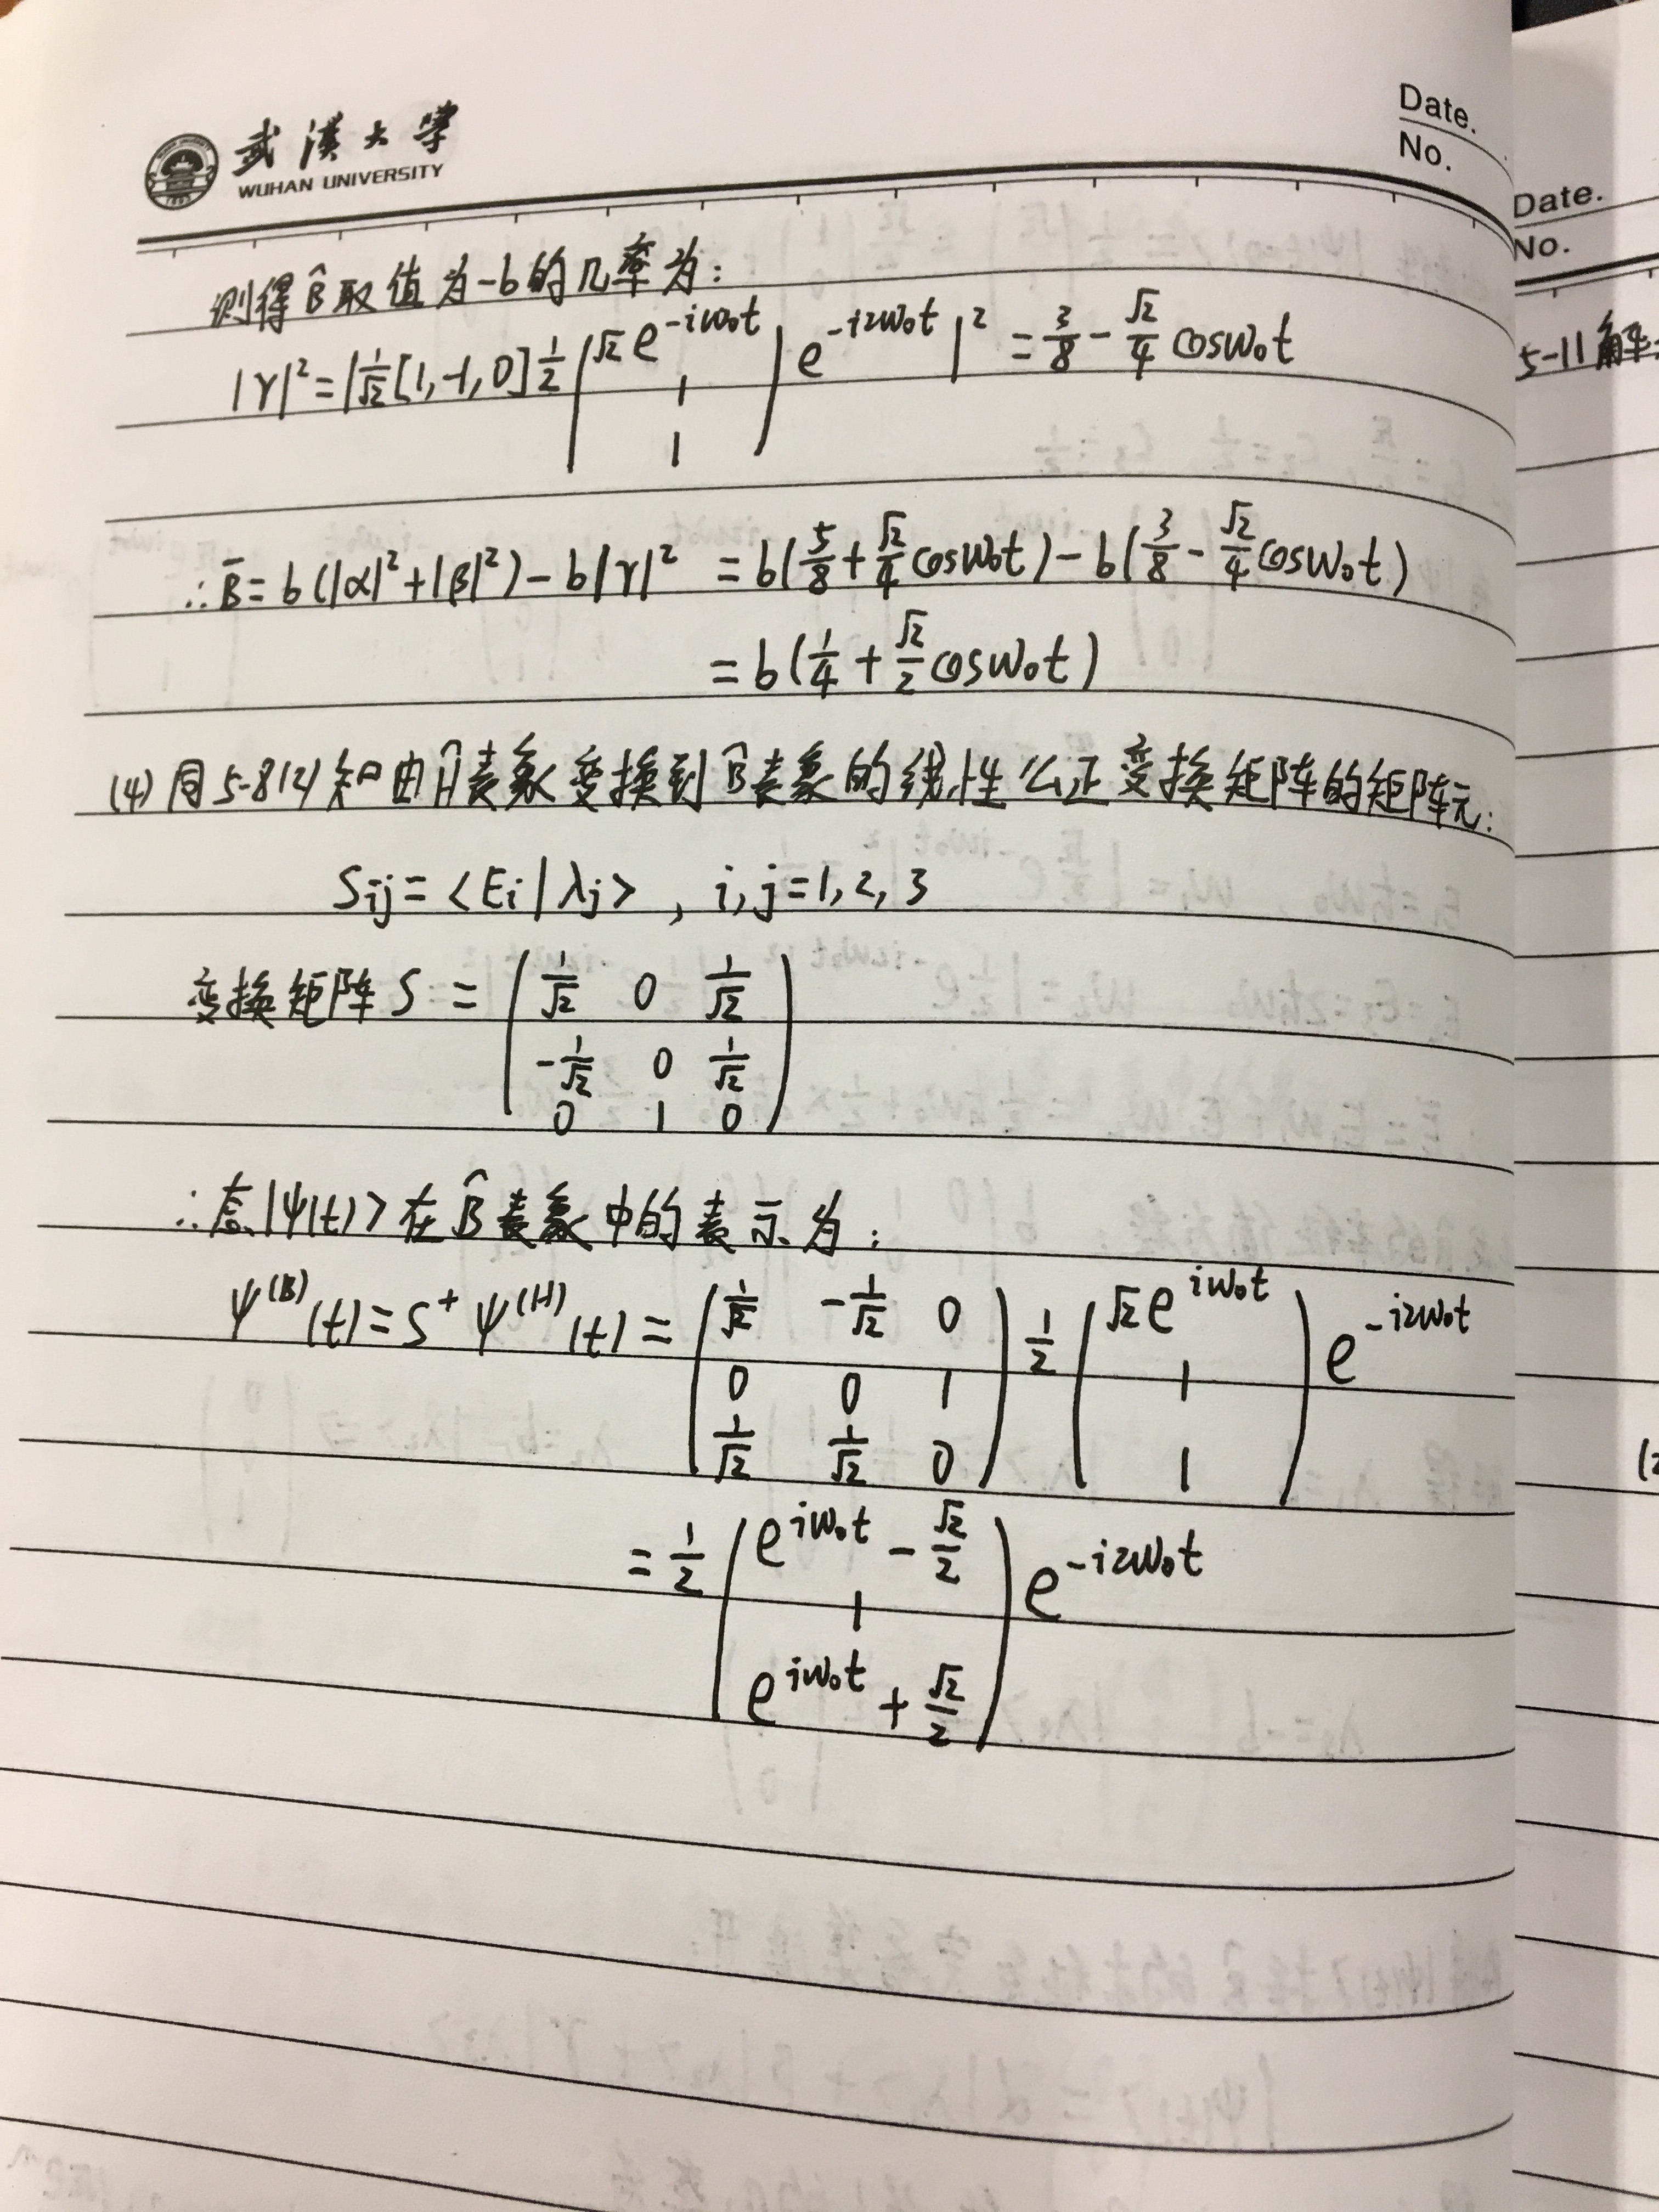 武漢大学
WUHAN UNIVERSITY
Date.
No.
测得B̂取值为-b的几率为:
|γ|² = |1/√2 [1,-1,0] 1/2 (√2 e^{-iω₀t} 1 1) e^{-i2ω₀t}|² = 3/8 - √2/4 cosω₀t
∴ B̄ = b(|α|²+|β|²) - b|γ|² = b(5/8 + √2/4 cosω₀t) - b(3/8 - √2/4 cosω₀t)
= b(1/4 + √2/2 cosω₀t)
(4) 同5-8(2)知由Ĥ表象变换到B̂表象的线性么正变换矩阵的矩阵元:
Sij = <Ei|λj> , i,j=1,2,3
变换矩阵S = (1/√2 0 1/√2
-1/√2 0 1/√2
0 1 0)
∴态|ψ(t)>在B̂表象中的表示为:
ψ^(B)(t) = S⁺ψ^(H)(t) = (1/√2 -1/√2 0
0 0 1
1/√2 1/√2 0) 1/2 (√2 e^{iω₀t}
1
1) e^{-i2ω₀t}
= 1/2 (e^{iω₀t} - √2/2
1
e^{iω₀t} + √2/2) e^{-i2ω₀t}
Date.
No.
5-11 解: